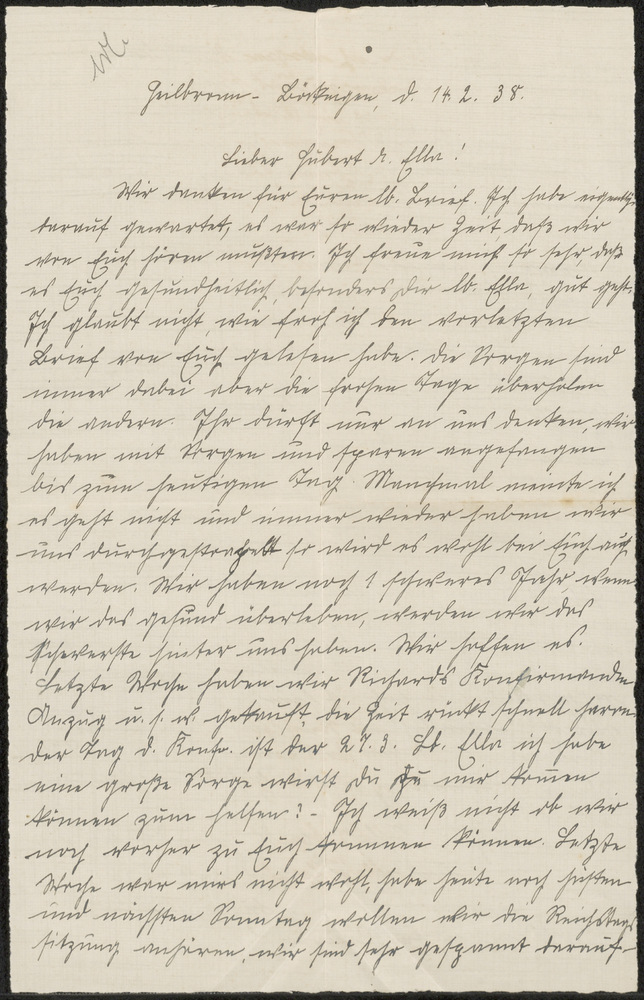 Heilbronn - Böckingen, d. 14.2.38.
Lieber Hubert u. Ella!
Wir danken für Euren lb. Brief. Ich habe eigentlich
darauf gewartet, es war so wieder Zeit daß wir
von Euch hören mußten. Ich freue mich so sehr, daß
es Euch gesundheitlich, besonders Dir lb. Ella, gut geht.
Ihr glaubt nicht wie froh ich den vorletzten
Brief von Euch gelesen habe. Die Sorgen sind
immer dabei aber die frohen Tage überholen
die andern. Ihr dürft nur an uns denken, wir
haben mit Sorgen und sparen angefangen
bis zum heutigen Tag. Manchmal meinte ich
es geht nicht und immer wieder haben wir
uns durchgestrampelt so wird es wohl bei Euch auch
werden. Wir haben noch 1 schweres Jahr wenn
wir das gesund überleben, werden wir das
Schwerste hinter uns haben. Wir hoffen es.
Letzte Woche haben wir Richards Konfirmanden
Anzug u. s. w. gekauft, die Zeit rückt schnell heran
der Tag d. Konfir. ist der 27.3. Lb. Ella ich habe
eine große Sorge wirst Du zu mir kommen
können zum helfen? - Ich weiß nicht ob wir
noch vorher zu Euch kommen können. Letzte
Woche war mirs nicht wohl, habe heute noch Husten
und nächsten Sonntag wollen wir die Reichstags
sitzung anhören, wir sind sehr gespannt darauf.